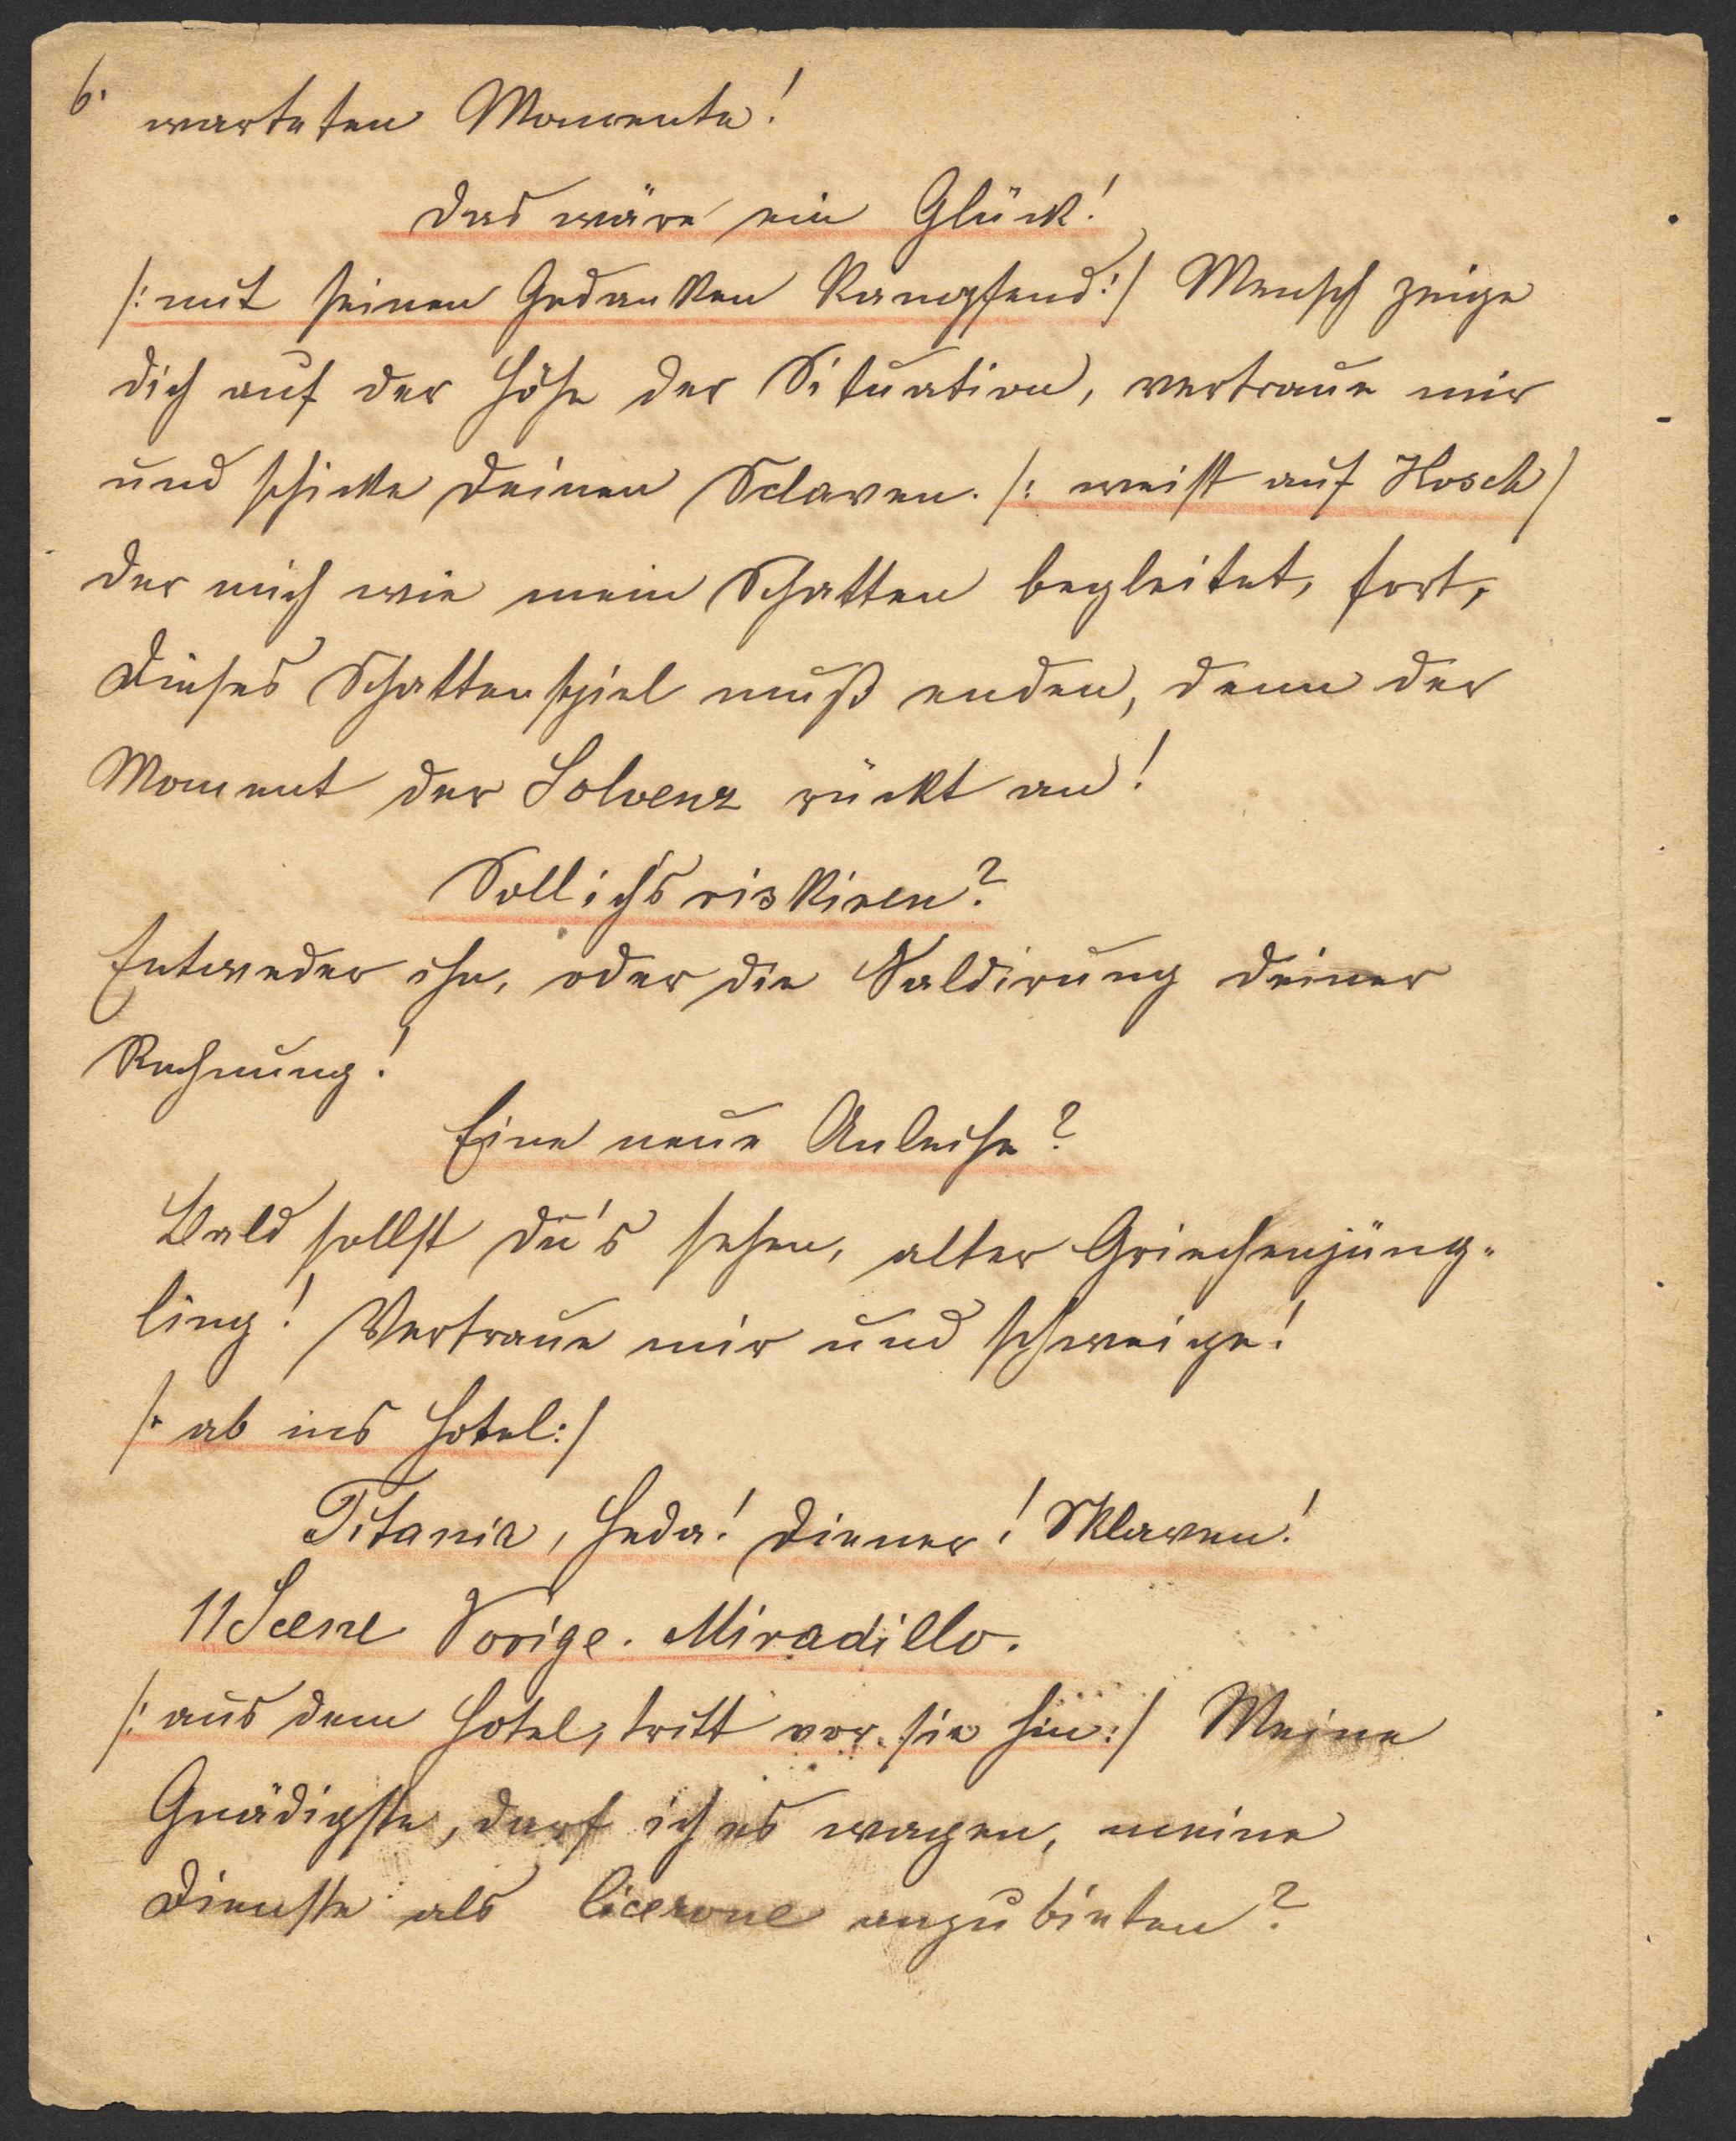 6.
warteten Momente!
Das wäre ein Glück!
/: mit seinen Gedanken kämpfend :/ Mensch zeige
dich auf der Höhe der Situation, vertraue mir
und schicke deinen Sclaven. /: weist auf Hosch /
der mich wie mein Schatten begleitet, fort,
dieses Schattenspiel muß enden, denn der
Moment der Solvenz rückt an!
Soll ich's riskiren?
Entweder ihn, oder die Saldirung deiner
Rechnung!
Eine neue Anleihe?
Bald sollst du's sehen, alter Griechenjüng-
ling! Vertraue mir und schweige!
/: ab ins Hotel :/
Titania, heda! Diener! Sklaven!
11 Scene Vorige. Miradillo.
/: aus dem Hotel, tritt vor sie hin :/ Meine
Gnädigste, darf ich es wagen, meine
Dienste als Cicerone anzubieten?